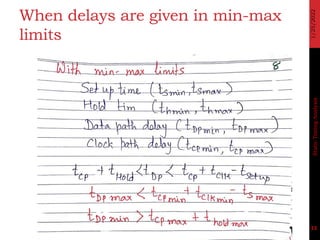 When delays are given in min-max
limits
1/25/2022
With min-max limits
8
Set up time (tsmin, tsmax)
Hold tim (thmin, thmax)
Data path delay (tDPmin, tDPmax)
Clock path delay (tCPmin, tCP max)
tCP + tHold < tDP < tCP + tClk - tsetup
tDP max < tCPmin + tClKmin - ts max
tDP min > tCP max + t hold max
Static Timing Analysis